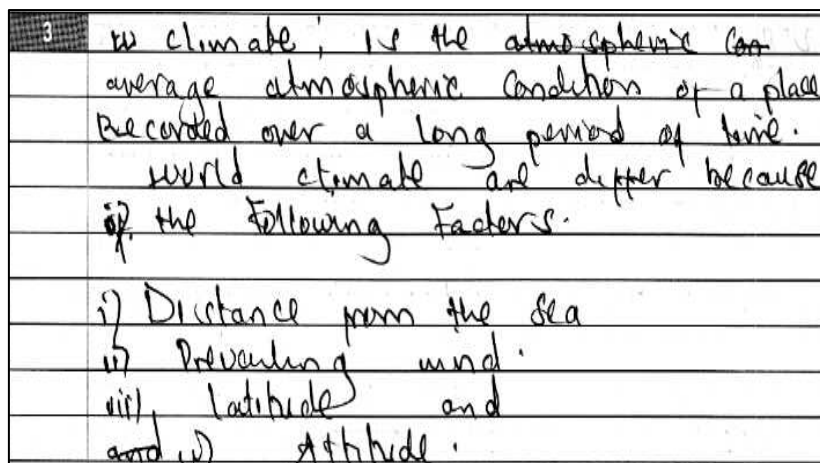 3 climate; is the atmospheric Con
average atmospheric Condition of a place
Recorded over a long period of time.
world climate are differ because
of the Following Factors.
i) Distance from the sea
ii) Prevailing wind.
iii) latitude and
and iv) Attitude.